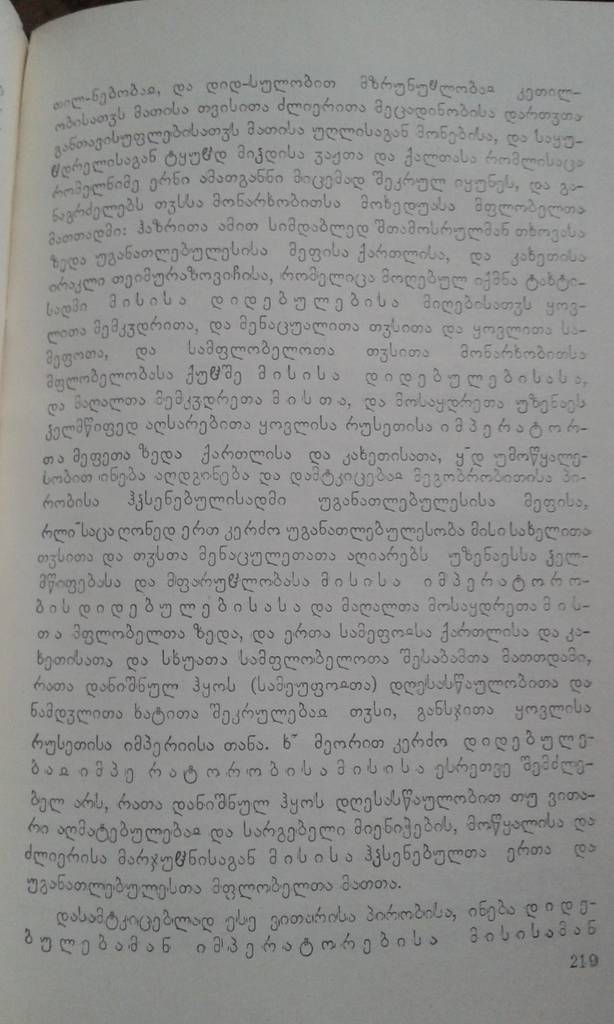 თილ-ნებობაჲ, და დიდ-სულობით მზრუნუჱლობაჲ კეთილ-
ობისათჳს მათისა თვისითა ძლიერითა მეცადინობისა დართჳთა
განთავისუფლებისათჳს მათისა უღლისაგან მონებისა, და საყუ-
ჱდრელისაგან ტყუჱდ მიჴდისა ვაჟთა და ქალთასა რომლისაცა
რომელნიმე ერნი ამათგანნი მიცემად შეკრულ იყუნეს, და გა-
ნაგრძელებს თჳსსა მონარხობითსა მოხედუასა მფლობელთა
მათთადმი: ჰაზრითა ამით სიმდაბლედ შთამოსრულმან თხოვასა
ზედა უგანათლებულესისა მეფისა ქართლისა, და კახეთისა
ირაკლი თეიმურაზოვიჩისა, რომელიცა მოღებულ იქმნა ტახტი-
სადმი მისისა დიდებულებისა მიღებისათჳს ყოვ-
ლითა მემკჳდრითა, და მენაცუალითა თჳსითა და ყოვლითა სა-
მეფოთა, და სამფლობელოთა თჳსითა მონარხობითსა
მფლობელობასა ქუჱშე მისისა დიდებულებისასა,
და მაღალთა მემკჳდრეთა მისთა, და მოსაყდრეთა უზენაეს
ჴელმწიფედ აღსარებითა ყოვლისა რუსეთისა იმპერატორ-
თა მეფეთა ზედა ქართლისა და კახეთისათა, ყ~დ უმოწყალე-
სობით ინება აღდგინება და დამტკიცებაჲ მეგობრობითისა პი-
რობისა ჰჴსენებულისადმი უგანათლებულესისა მეფისა,
რლი~საცა ღონედ ერთ კერძო უგანათლებულესობა მისი სახელითა
თჳსითა და თჳსთა მენაცულეთათა აღიარებს უზენაესსა ჴელ-
მწიფებასა და მფარუჱლობასა მისისა იმპერატორო-
ბის დიდებულებისასა და მაღალთა მოსაყდრეთა მის-
თა მფლობელთა ზედა, და ერთა სამეფოჲსა ქართლისა და კა-
ხეთისათა და სხუათა სამფლობელოთა შესაბამთა მათთდამი,
რათა დანიშნულ ჰყოს (სამეუფოჲთა) დღესასწაულობითა და
ნამდჳლითა ხატითა შეკრულებაჲ თჳსი, განსჯითა ყოვლისა
რუსეთისა იმპერიისა თანა. ხ~ მეორით კერძო დიდებულე-
ბაჲ იმპერატორობისა მისისა ესრეთვე შემძლე-
ბელ არს, რათა დანიშნულ ჰყოს დღესასწაულობით თუ ვითა-
რი აღმატებულებაჲ და სარგებელი მიენიჭების, მოწყალისა და
ძლიერისა მარჯუჱნისაგან მისისა ჰჴსენებულთა ერთა და
უგანათლებულესთა მფლობელთა მათთა.
დასამტკიცებლად ესე ვითარისა პირობისა, ინება დიდე-
ბულებამან იმპერატორებისა მისისამან
219